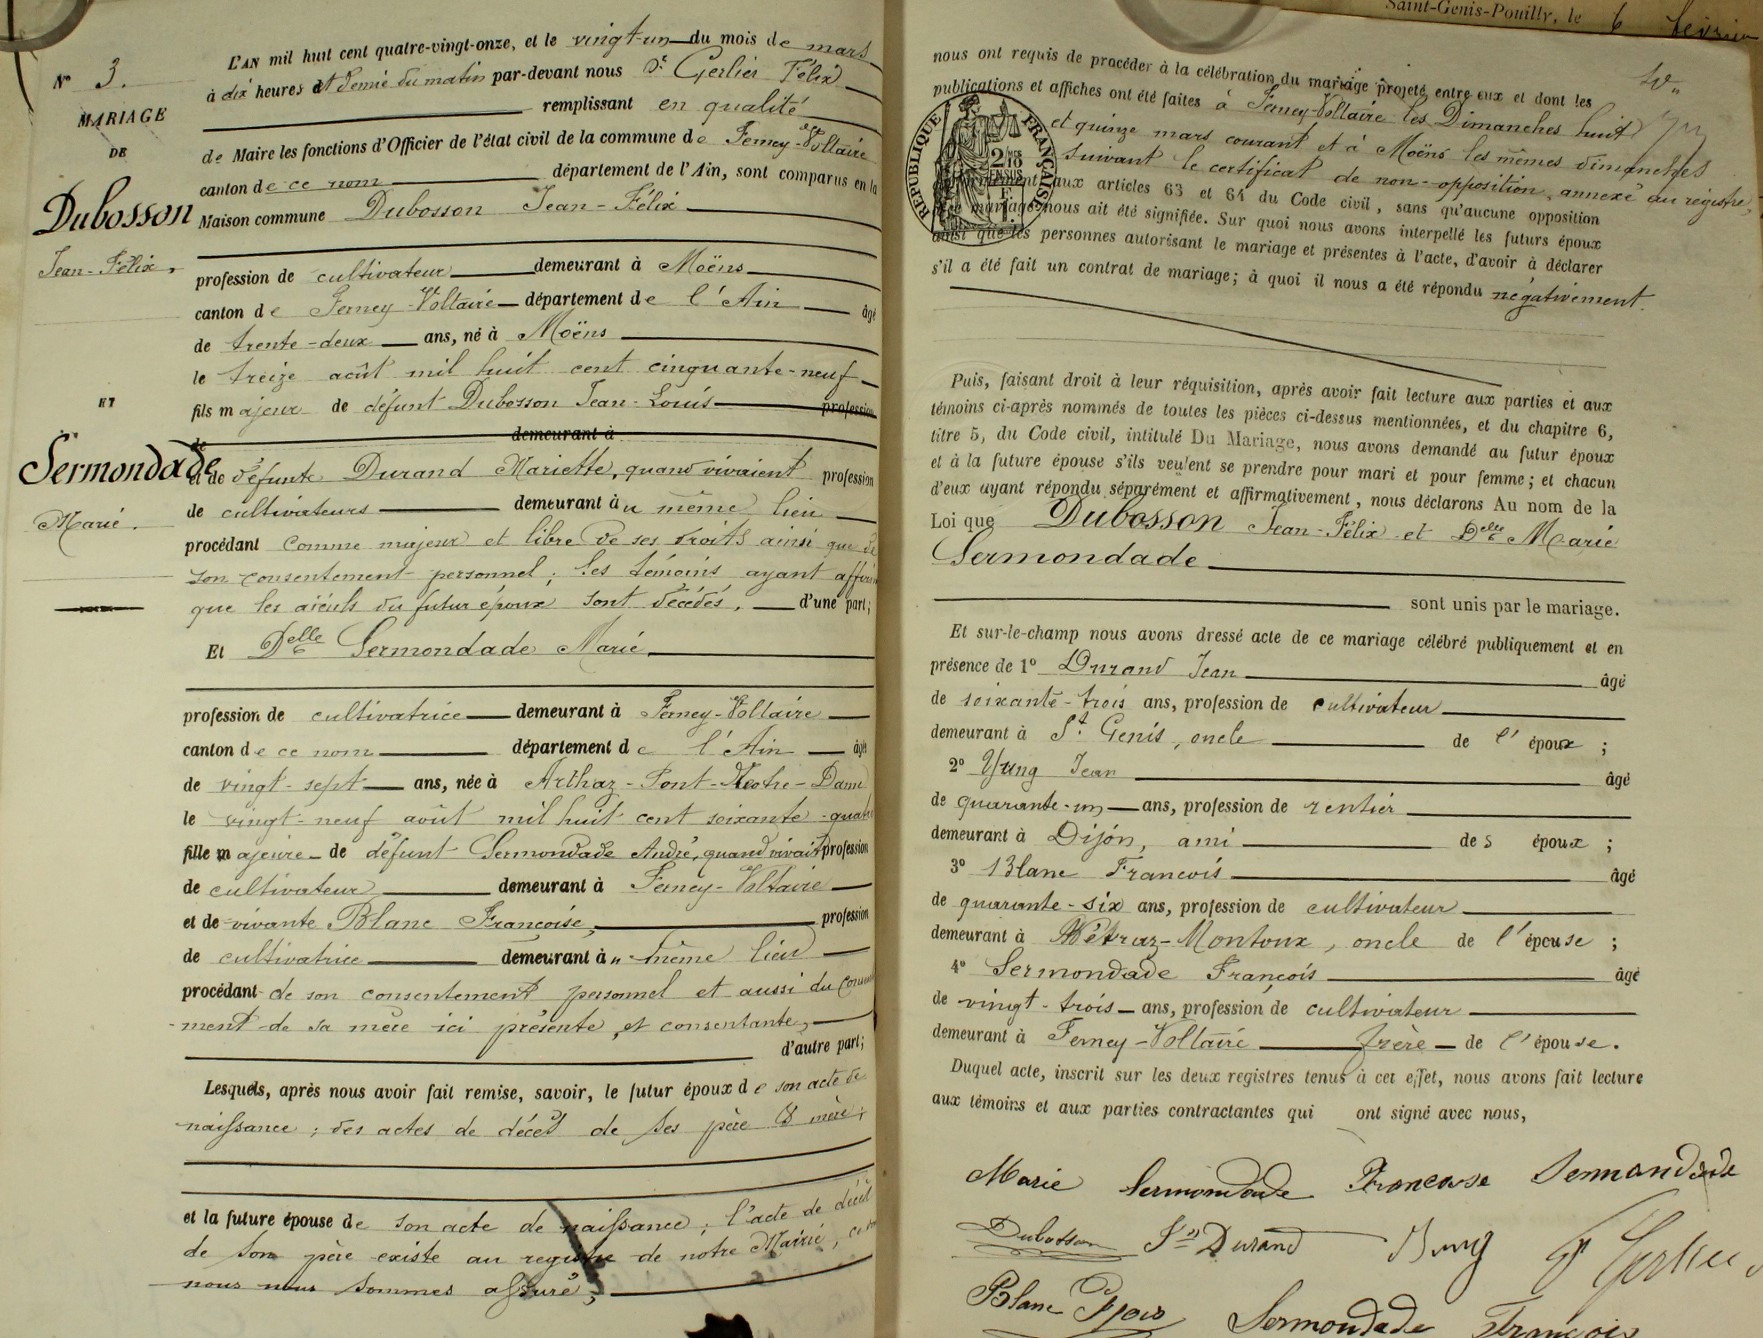 L'AN mil huit cent quatre-vingt-onze, et le vingt-un du mois de mars
N° 3. à dix heures et demie du matin par-devant nous Sr Gerlier Félix
MARIAGE remplissant en qualité
DE de Maire les fonctions d'Officier de l'état civil de la commune de Ferney-Voltaire
canton de ce nom département de l'Ain, sont comparus en la
Dubosson Maison commune Dubosson Jean-Félix
Jean-Félix.
profession de cultivateur demeurant à Moëns
canton de Ferney-Voltaire département de l'Ain âgé
de trente-deux ans, né à Moëns
le treize août mil huit cent cinquante-neuf
ET fils majeur de défunt Dubosson Jean-Louis profession
de demeurant à
Sermondade et de défunte Durand Mariette, quand vivaient profession
Marie. de cultivateurs demeurant à u même lieu
procédant comme majeur et libre de ses droits ainsi que de
son consentement personnel ; les témoins ayant
que les aïeuls du futur époux sont décédés. d'une part;
Et Delle Sermondade Marie
profession de cultivatrice demeurant à Ferney-Voltaire
canton de ce nom département de l'Ain âgée
de vingt-sept ans, née à Arthaz-Pont-Notre-Dame
le vingt-neuf août mil huit cent soixante-quatre
fille majeure de défunt Sermondade André, quand vivait profession
de cultivateur demeurant à Ferney-Voltaire
et de vivante Blanc Françoise, profession
de cultivatrice demeurant à u même lieu
procédant de son consentement personnel et aussi du
ment de sa mère ici présente, et consentante,
d'autre part;
Lesquels, après nous avoir fait remise, savoir, le futur époux de son acte de
naissance ; des actes de décès de ses père & mère;
et la future épouse de son acte de naissance ; l'acte de décès
de son père existe au registre de notre Mairie,
nous nous sommes assuré,
Saint-Genis-Pouilly, le 6 février
nous ont requis de procéder à la célébration du mariage projeté entre eux et dont les
publications et affiches ont été faites à Ferney-Voltaire les Dimanches huit
et quinze mars courant et à Moëns les mêmes dimanches
suivant le certificat de non-opposition, annexé au registre,
RÉPUBLIQUE FRANÇAISE
aux articles 63 et 64 du Code civil, sans qu'aucune opposition
mariage nous ait été signifiée. Sur quoi nous avons interpellé les futurs époux
ainsi que les personnes autorisant le mariage et présentes à l'acte, d'avoir à déclarer
s'il a été fait un contrat de mariage; à quoi il nous a été répondu négativement.
Puis, faisant droit à leur réquisition, après avoir fait lecture aux parties et aux
témoins ci-après nommés de toutes les pièces ci-dessus mentionnées, et du chapitre 6,
titre 5, du Code civil, intitulé Du Mariage, nous avons demandé au futur époux
et à la future épouse s'ils veulent se prendre pour mari et pour femme; et chacun
d'eux ayant répondu séparément et affirmativement, nous déclarons Au nom de la
Loi que Dubosson Jean-Félix et Delle Marie
Sermondade
sont unis par le mariage.
Et sur-le-champ nous avons dressé acte de ce mariage célébré publiquement et en
présence de 1° Durand Jean âgé
de soixante-trois ans, profession de cultivateur
demeurant à St. Genis, oncle de l'époux ;
2° Yung Jean âgé
de quarante-un ans, profession de rentier
demeurant à Dijon, ami des époux ;
3° Blanc François âgé
de quarante-six ans, profession de cultivateur
demeurant à Vétraz-Montoux, oncle de l'épouse ;
4° Sermondade François âgé
de vingt-trois ans, profession de cultivateur
demeurant à Ferney-Voltaire frère de l'épouse.
Duquel acte, inscrit sur les deux registres tenus à cet effet, nous avons fait lecture
aux témoins et aux parties contractantes qui ont signé avec nous,
Marie Sermondade Francoise Sermondade
Dubosson Jn Durand
Blanc Sermondade François